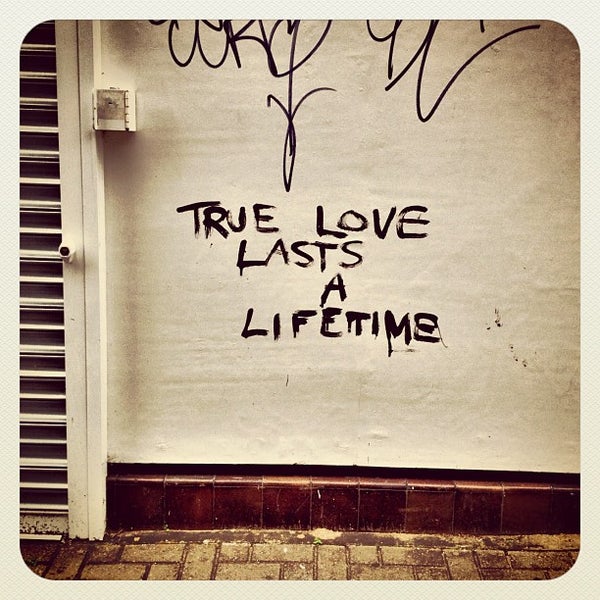 TRUE LOVE
LASTS
A
LIFETIME